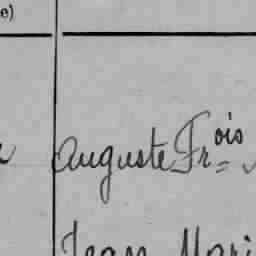 e)
Auguste Fr.ois
Jean Mari